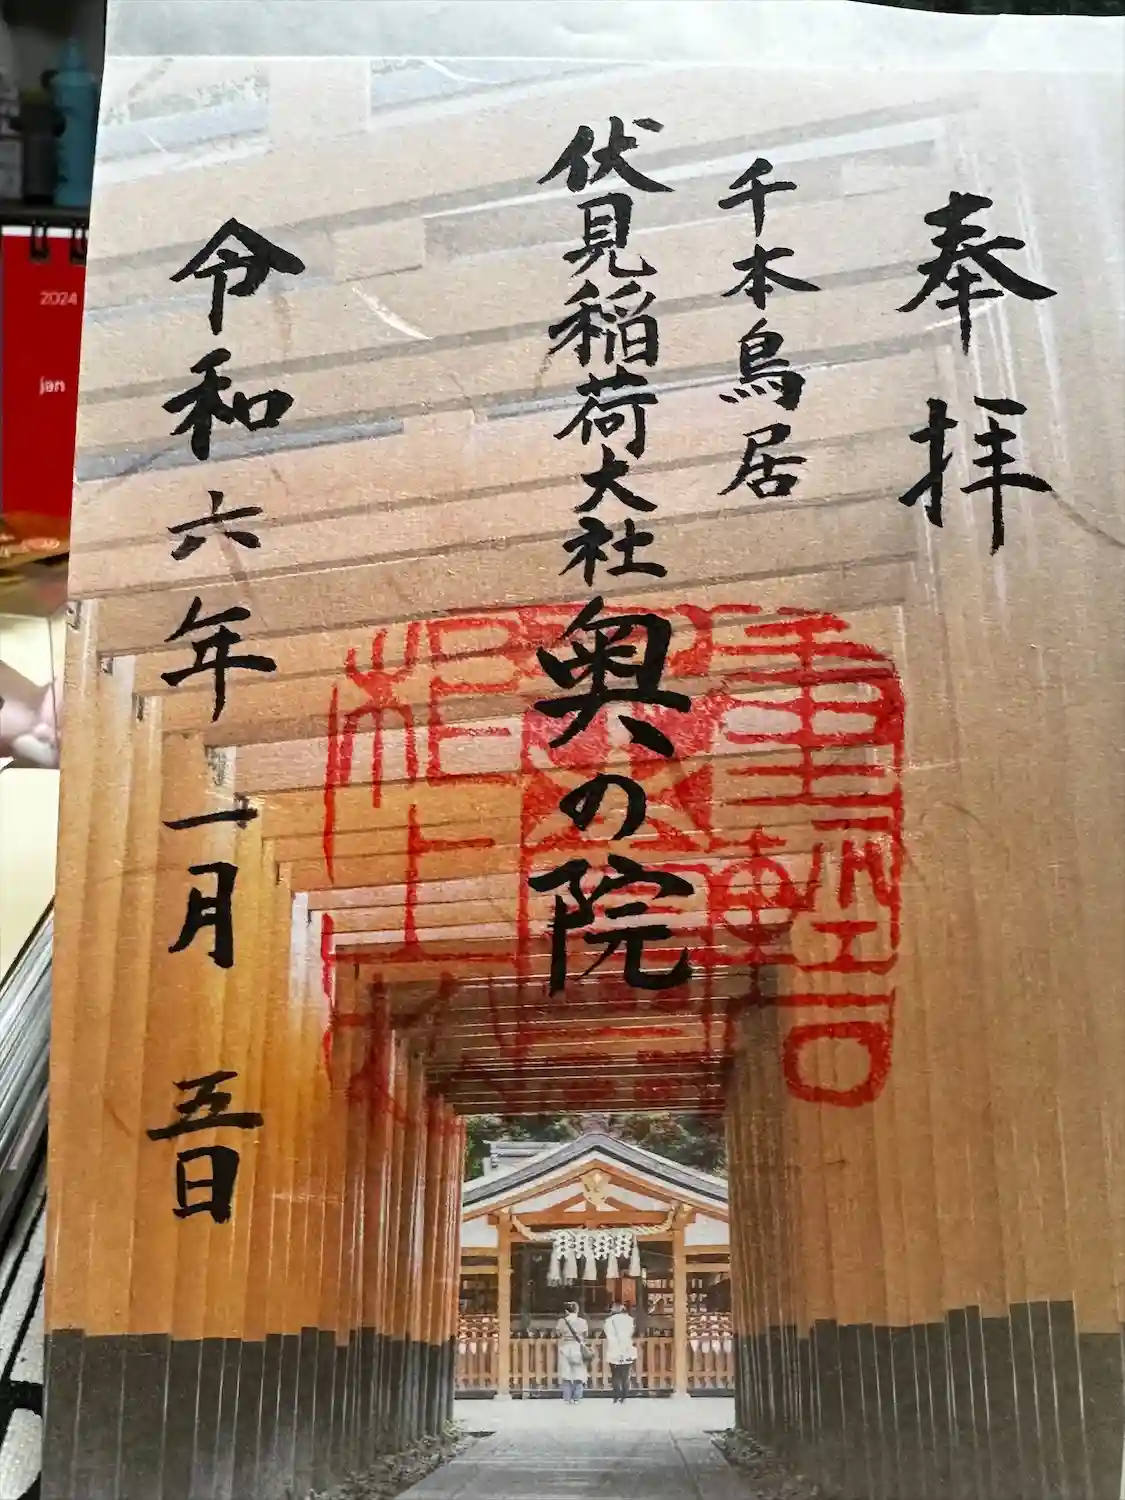 奉拝
千本鳥居
伏見稲荷大社奥の院
令和六年一月五日
2024
jan